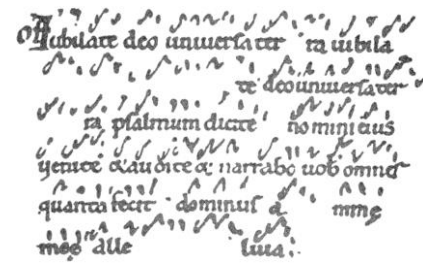 Iubilate deo uniuersa ter ra iubila
te deo uniuersa ter
ra psalmum dicite nomini eius
uenite & audite & narrabo uob omnes
quanta fecit dominus a nime
meę alle luia.